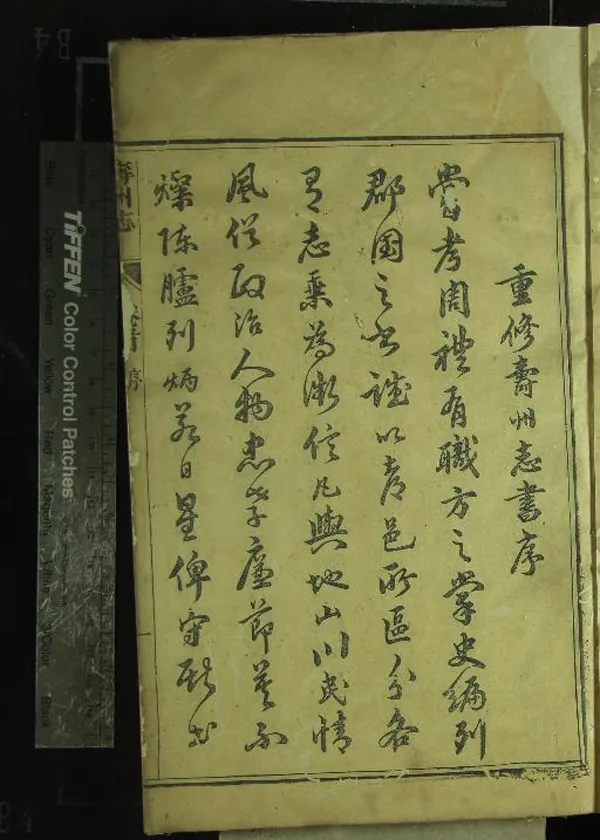 重修壽州志書序
嘗考周禮有職方之掌史編列
郡國之書誠以京邑所區分各
有志乘為徵信凡輿地山川民情
風俗政治人物忠孝廉節莫不
燦陳臚列炳若日星俾守斯土
壽州志
序
TIFFEN Color Control Patches
Blue
Cyan
Green
Yellow
Red
Magenta
White
3/Color
Black